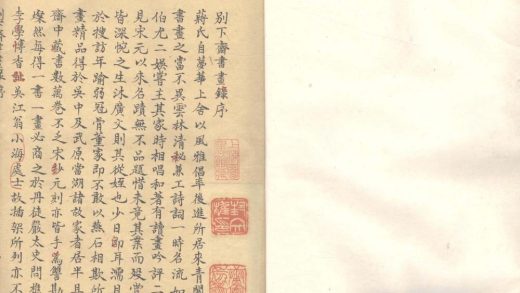 别下齋書畫錄序
蔣氏自華上舍以風雅倡率後進所居來青閣
書畫之富不異雲林清秘兼工詩詞一時名流如
伯尤二嘗主其家時相唱和著有讀畫吟評二
見宋元以來名蹟無不品題惜未竟其業而殁
皆深悅之生沐廣文則其從姪也少日即耳濡目
於搜訪年踰弱冠骨董家即不敢以燕石相欺所
畫精品得於吳中及武原當湖諸故家者居半且
齋中藏書數萬卷不乏宋元則亦皆手為讐勘
燦然每得一書一畫必商之於丹徒嚴太史問
李學博香吳江翁小海處士故插架所列亦不